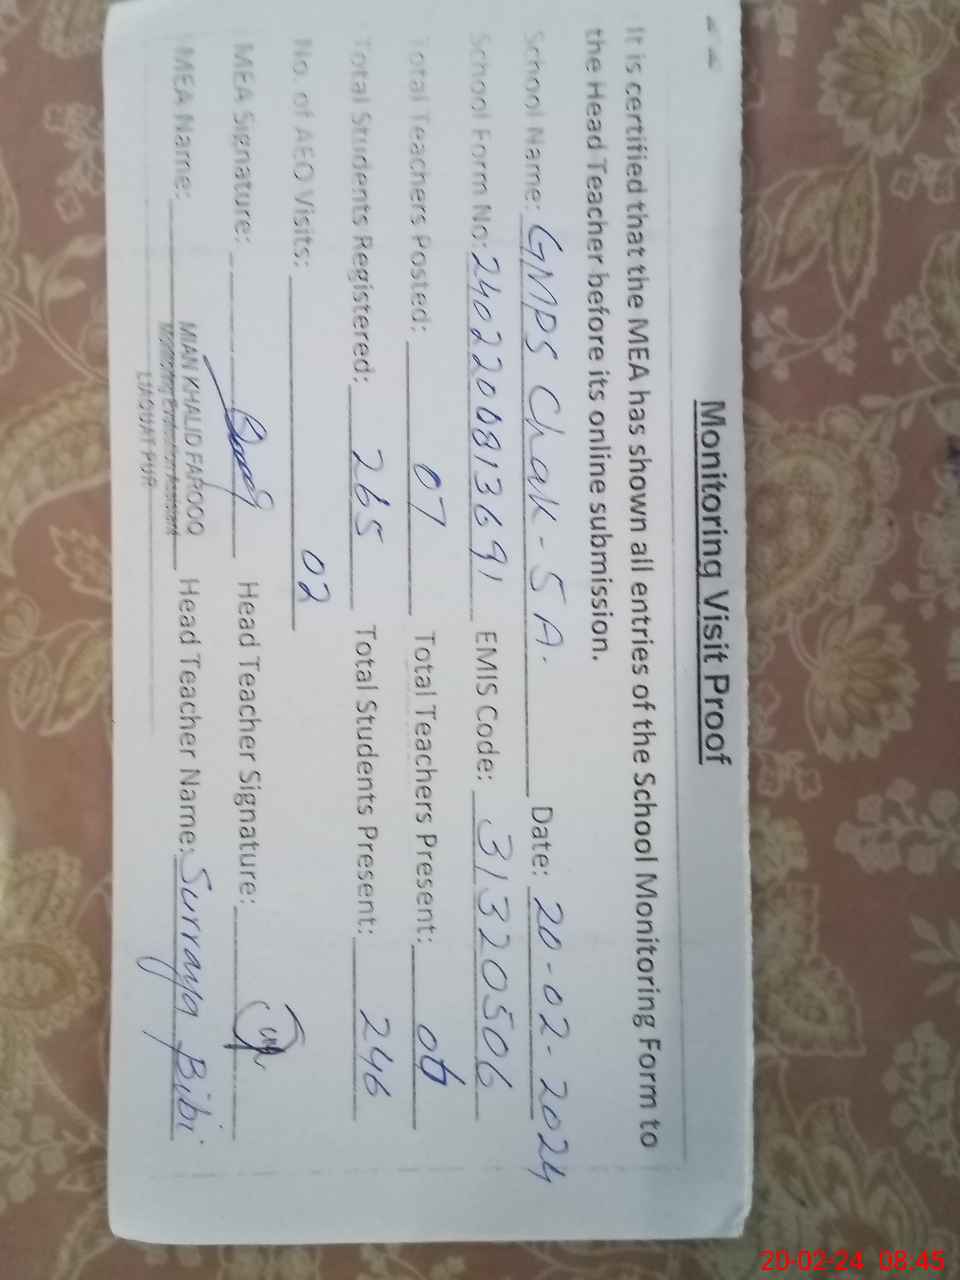 Monitoring Visit Proof
It is certified that the MEA has shown all entries of the School Monitoring Form to
the Head Teacher before its online submission.
School Name: GMPS Chak-5A. Date: 20-02-2024
School Form No: 2402200813691 EMIS Code: 31320506
Total Teachers Posted: 07 Total Teachers Present: 06
Total Students Registered: 265 Total Students Present: 246
No. of AEO Visits: 02
MEA Signature: Head Teacher Signature:
MEA Name: MIAN KHALID FAROOQ Head Teacher Name: Surraya Bibi
Monitoring Evaluation Assistant
LIAQUAT PUR
20-02-24 08:45